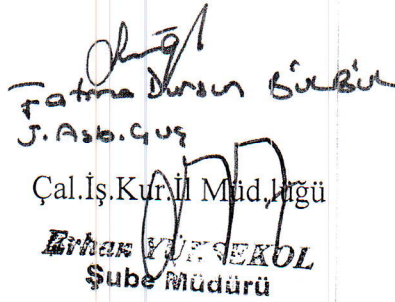 Fatma Dursun Bülbül
J. Asb. Çvş
Çal.İş.Kur.İl Müd.lüğü
Erhan YÜKSEKOL
Şube Müdürü